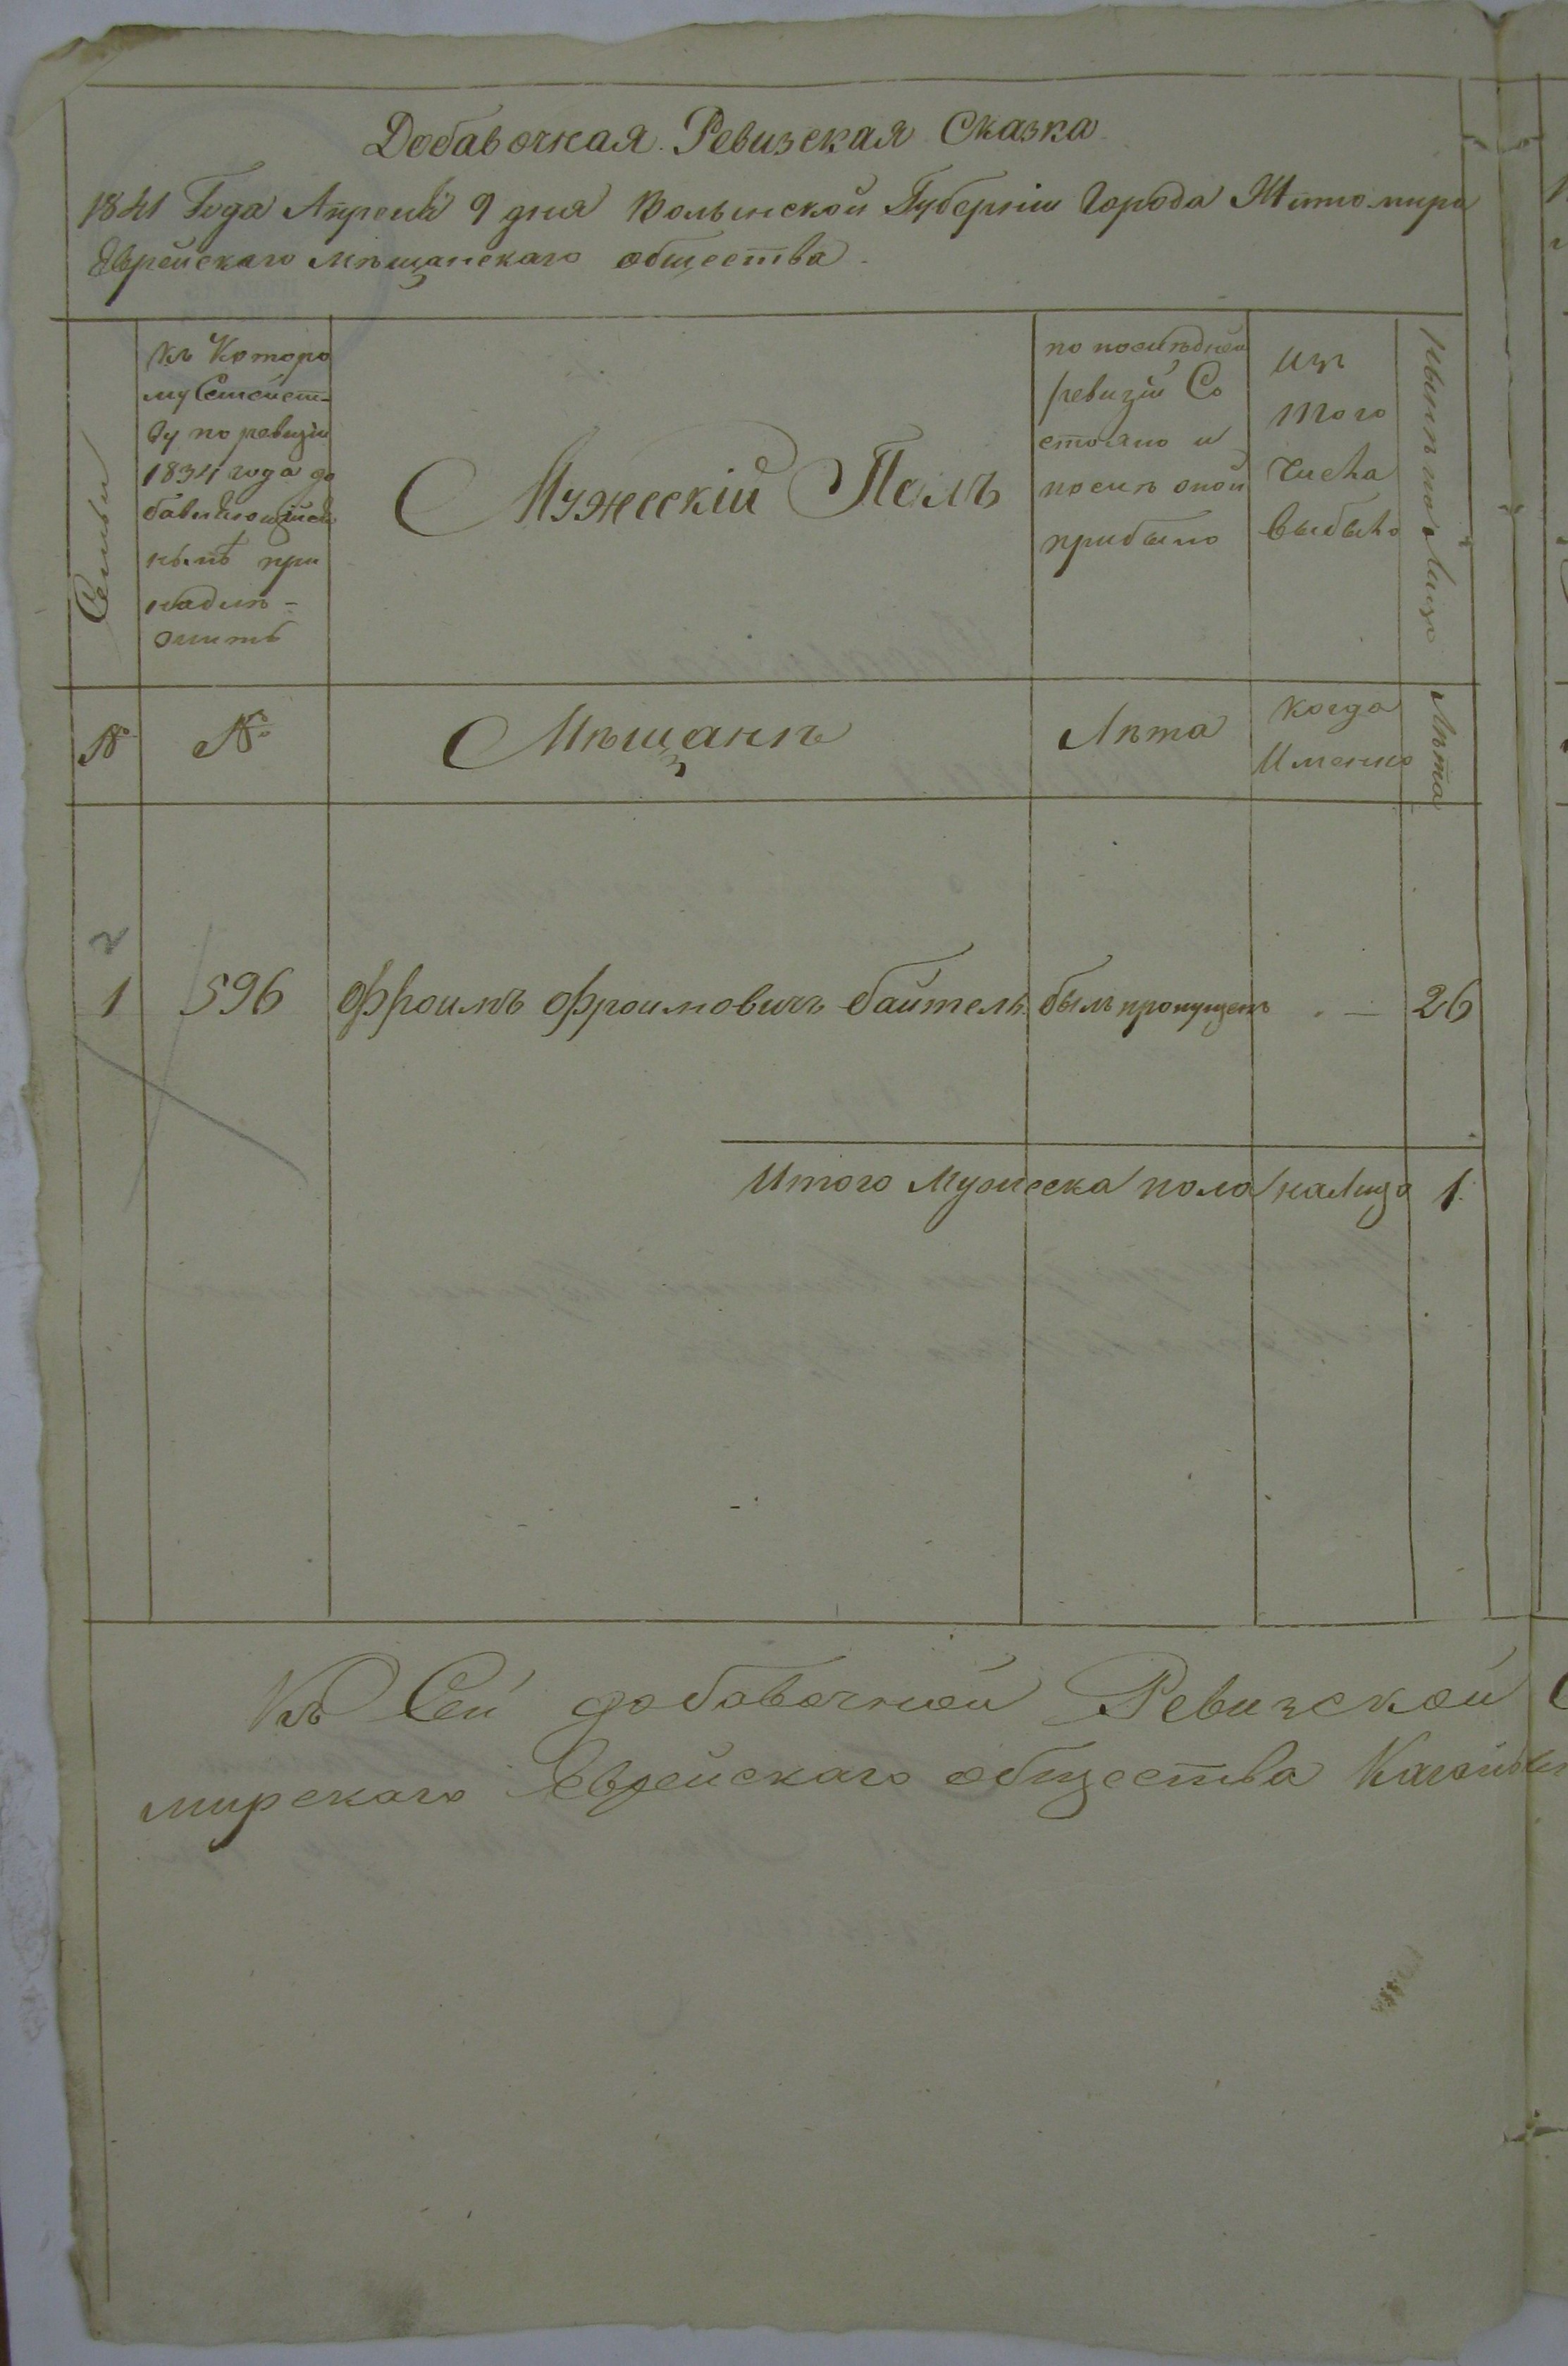 Добавочная Ревизская Сказка
1841 Года Апреля 9 дня Волынской Губерніи Города Житомира
Еврейскаго мѣщанскаго общества.
Семьи
Къ Которо
му Семейст-
ву по ревизіи
1834 года до
бавляющійся
нынѣ при
надлѣ-
житъ
Мужескій Полъ
по послѣдней
ревизіи Со
стояло и
послѣ оной
прибыло
Изъ
того
числа
выбыло
Нынѣ на Лицо
№
№
Мѣщанъ
Лѣта
когда
Именно
Лѣта
2
1 596 Фроимъ Фроимовичъ байтель былъ пропущенъ . — 26
Итого Мужеска пола налицо 1.
Къ Сей добавочной Ревизской
мирскаго Еврейскаго общества